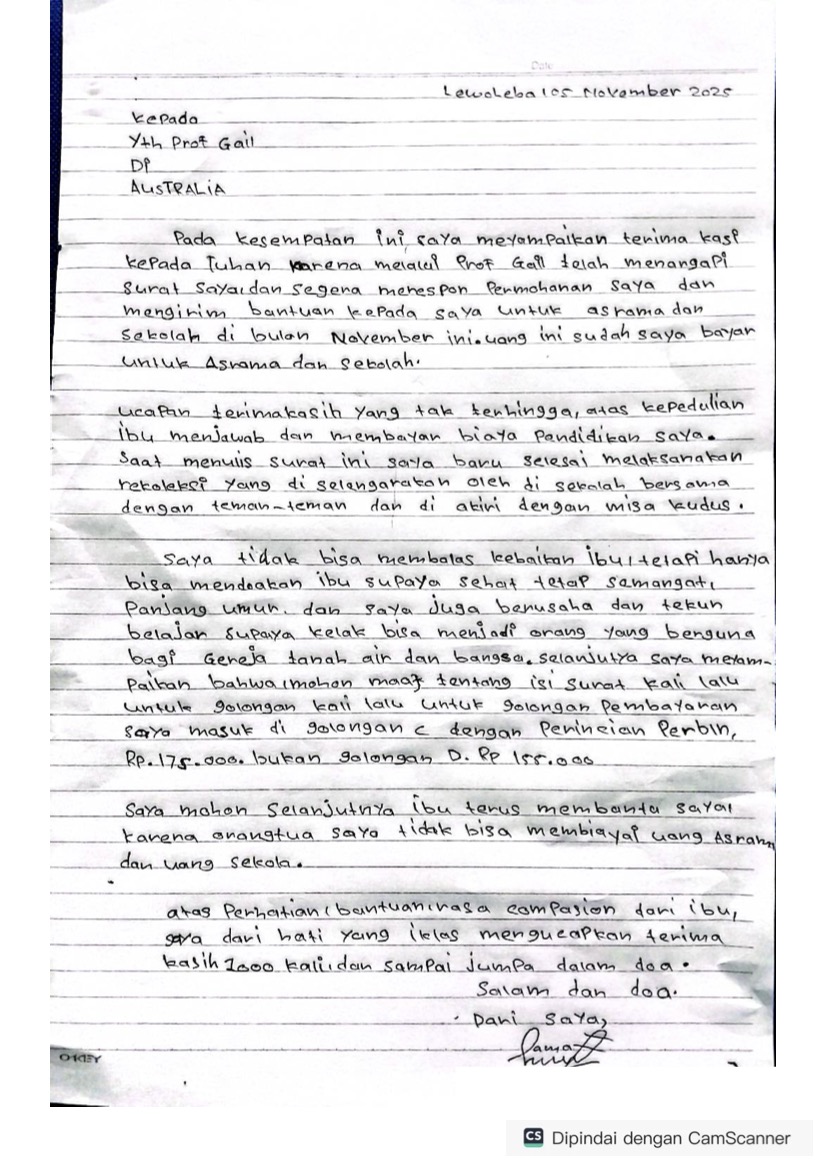 Date
Lewoleba, 05 November 2025
Kepada
Yth Prof Gail
Di
AUSTRALIA
Pada kesempatan ini, saya meyampaikan terima kasi
kepada Tuhan karena melalui Prof Gail telah menangapi
surat saya, dan segera merespon Permohanan saya dan
mengirim bantuan kepada saya untuk asrama dan
sekolah di bulan November ini. uang ini sudah saya bayar
untuk Asrama dan sekolah.
ucapan terimakasih yang tak terhingga, atas kepedulian
ibu menjawab dan membayar biaya Pendidikan saya.
Saat menulis surat ini saya baru selesai melaksanakan
rekoleksi yang di selangarakan oleh di sekolah bersama
dengan teman-teman dan di akiri dengan misa kudus.
Saya tidak bisa membalas kebaikan ibu, tetapi hanya
bisa mendoakan ibu supaya sehat tetap samangat,
Panjang umur. dan saya juga berusaha dan tekun
belajar supaya kelak bisa menjadi orang yang berguna
bagi Gereja tanah air dan bangsa. selanjutya saya meyam-
paikan bahwa, mohon maaf tentang isi surat kali lalu
untuk golongan kali lalu untuk golongan pembayaran
saya masuk di golongan C dengan Perincian Perbln,
Rp.175.000. bukan golongan D. Rp 155.000
Saya mohon Selanjutnya ibu terus membantu saya,
karena orangtua saya tidak bisa membiayai uang Asrama
dan uang sekola.
atas Perhatian, bantuan, rasa compasion dari ibu,
saya dari hati yang iklas mengucapkan terima
kasih 1000 kali, dan sampai jumpa dalam doa.
Salam dan doa.
Dari saya,
OKEY
CS Dipindai dengan CamScanner